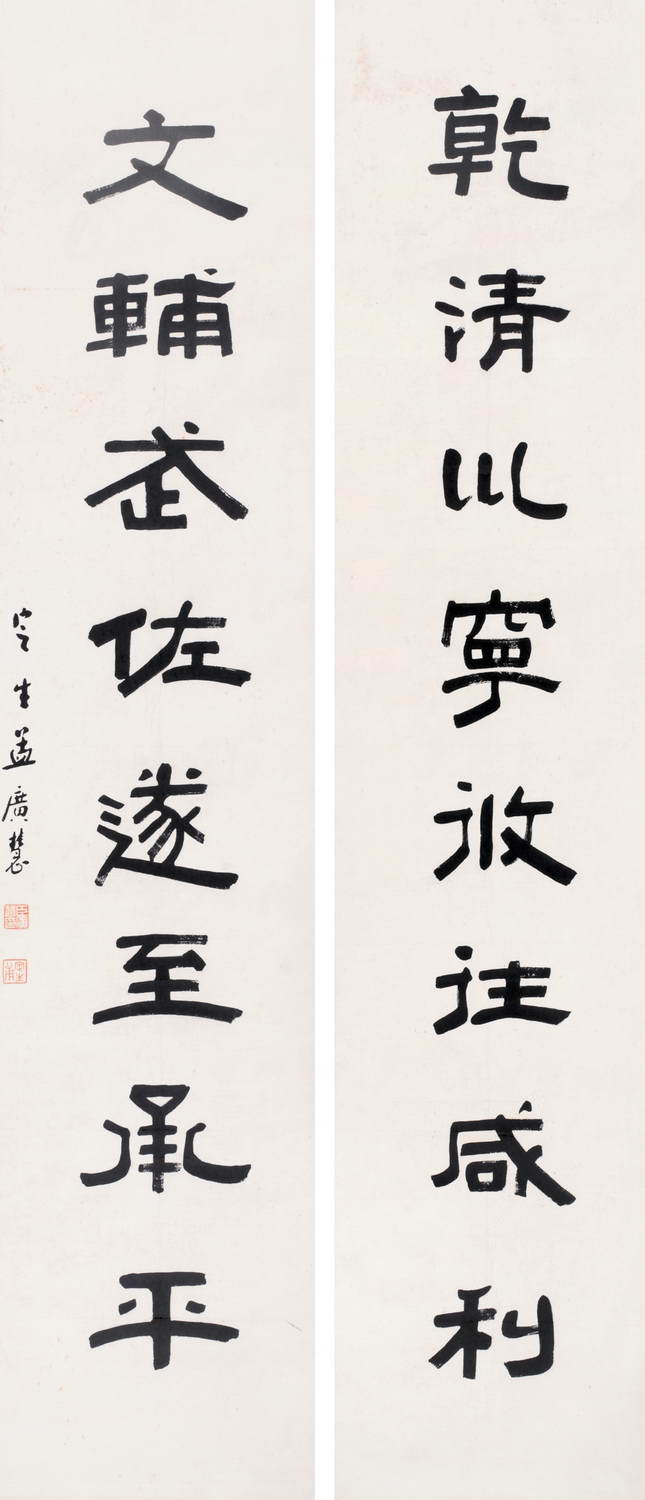 乾清川寧攸往咸利
文輔武佐遂至承平
定生孟廣慧